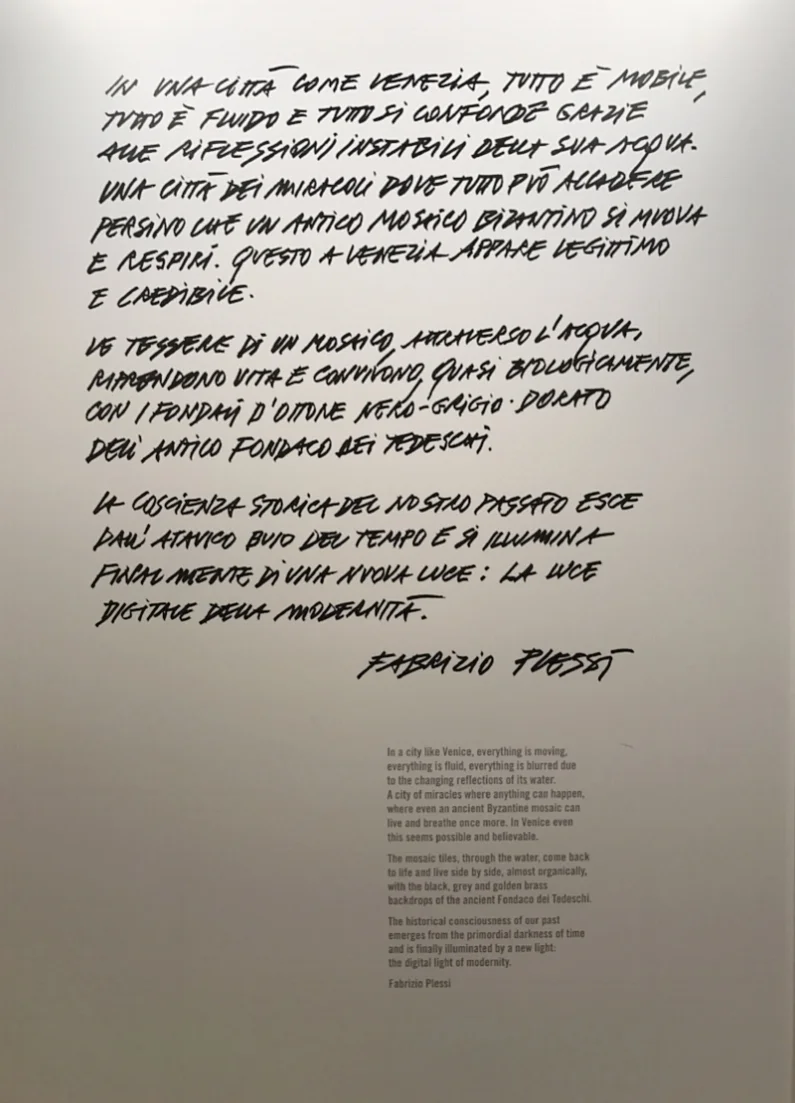 IN UNA CITTÀ COME VENEZIA, TUTTO È MOBILE,
TUTTO È FLUIDO E TUTTO SI CONFONDE GRAZIE
ALLE RIFLESSIONI INSTABILI DELLA SUA ACQUA.
UNA CITTÀ DEI MIRACOLI DOVE TUTTO PUÒ ACCADERE
PERSINO CHE UN ANTICO MOSAICO BIZANTINO SI MUOVA
E RESPIRI. QUESTO A VENEZIA APPARE LEGITTIMO
E CREDIBILE.
LE TESSERE DI UN MOSAICO, ATTRAVERSO L'ACQUA,
RIPRENDONO VITA E CONVIVONO, QUASI BIOLOGICAMENTE,
CON I FONDALI D'OTTONE NERO-GRIGIO-DORATO
DELL'ANTICO FONDACO DEI TEDESCHI.
LA COSCIENZA STORICA DEL NOSTRO PASSATO ESCE
DALL'ATAVICO BUIO DEL TEMPO E SI ILLUMINA
FINALMENTE DI UNA NUOVA LUCE: LA LUCE
DIGITALE DELLA MODERNITÀ.
FABRIZIO PLESSI
In a city like Venice, everything is moving,
everything is fluid, everything is blurred due
to the changing reflections of its water.
A city of miracles where anything can happen,
where even an ancient Byzantine mosaic can
live and breathe once more. In Venice even
this seems possible and believable.
The mosaic tiles, through the water, come back
to life and live side by side, almost organically,
with the black, grey and golden brass
backdrops of the ancient Fondaco dei Tedeschi.
The historical consciousness of our past
emerges from the primordial darkness of time
and is finally illuminated by a new light:
the digital light of modernity.
Fabrizio Plessi